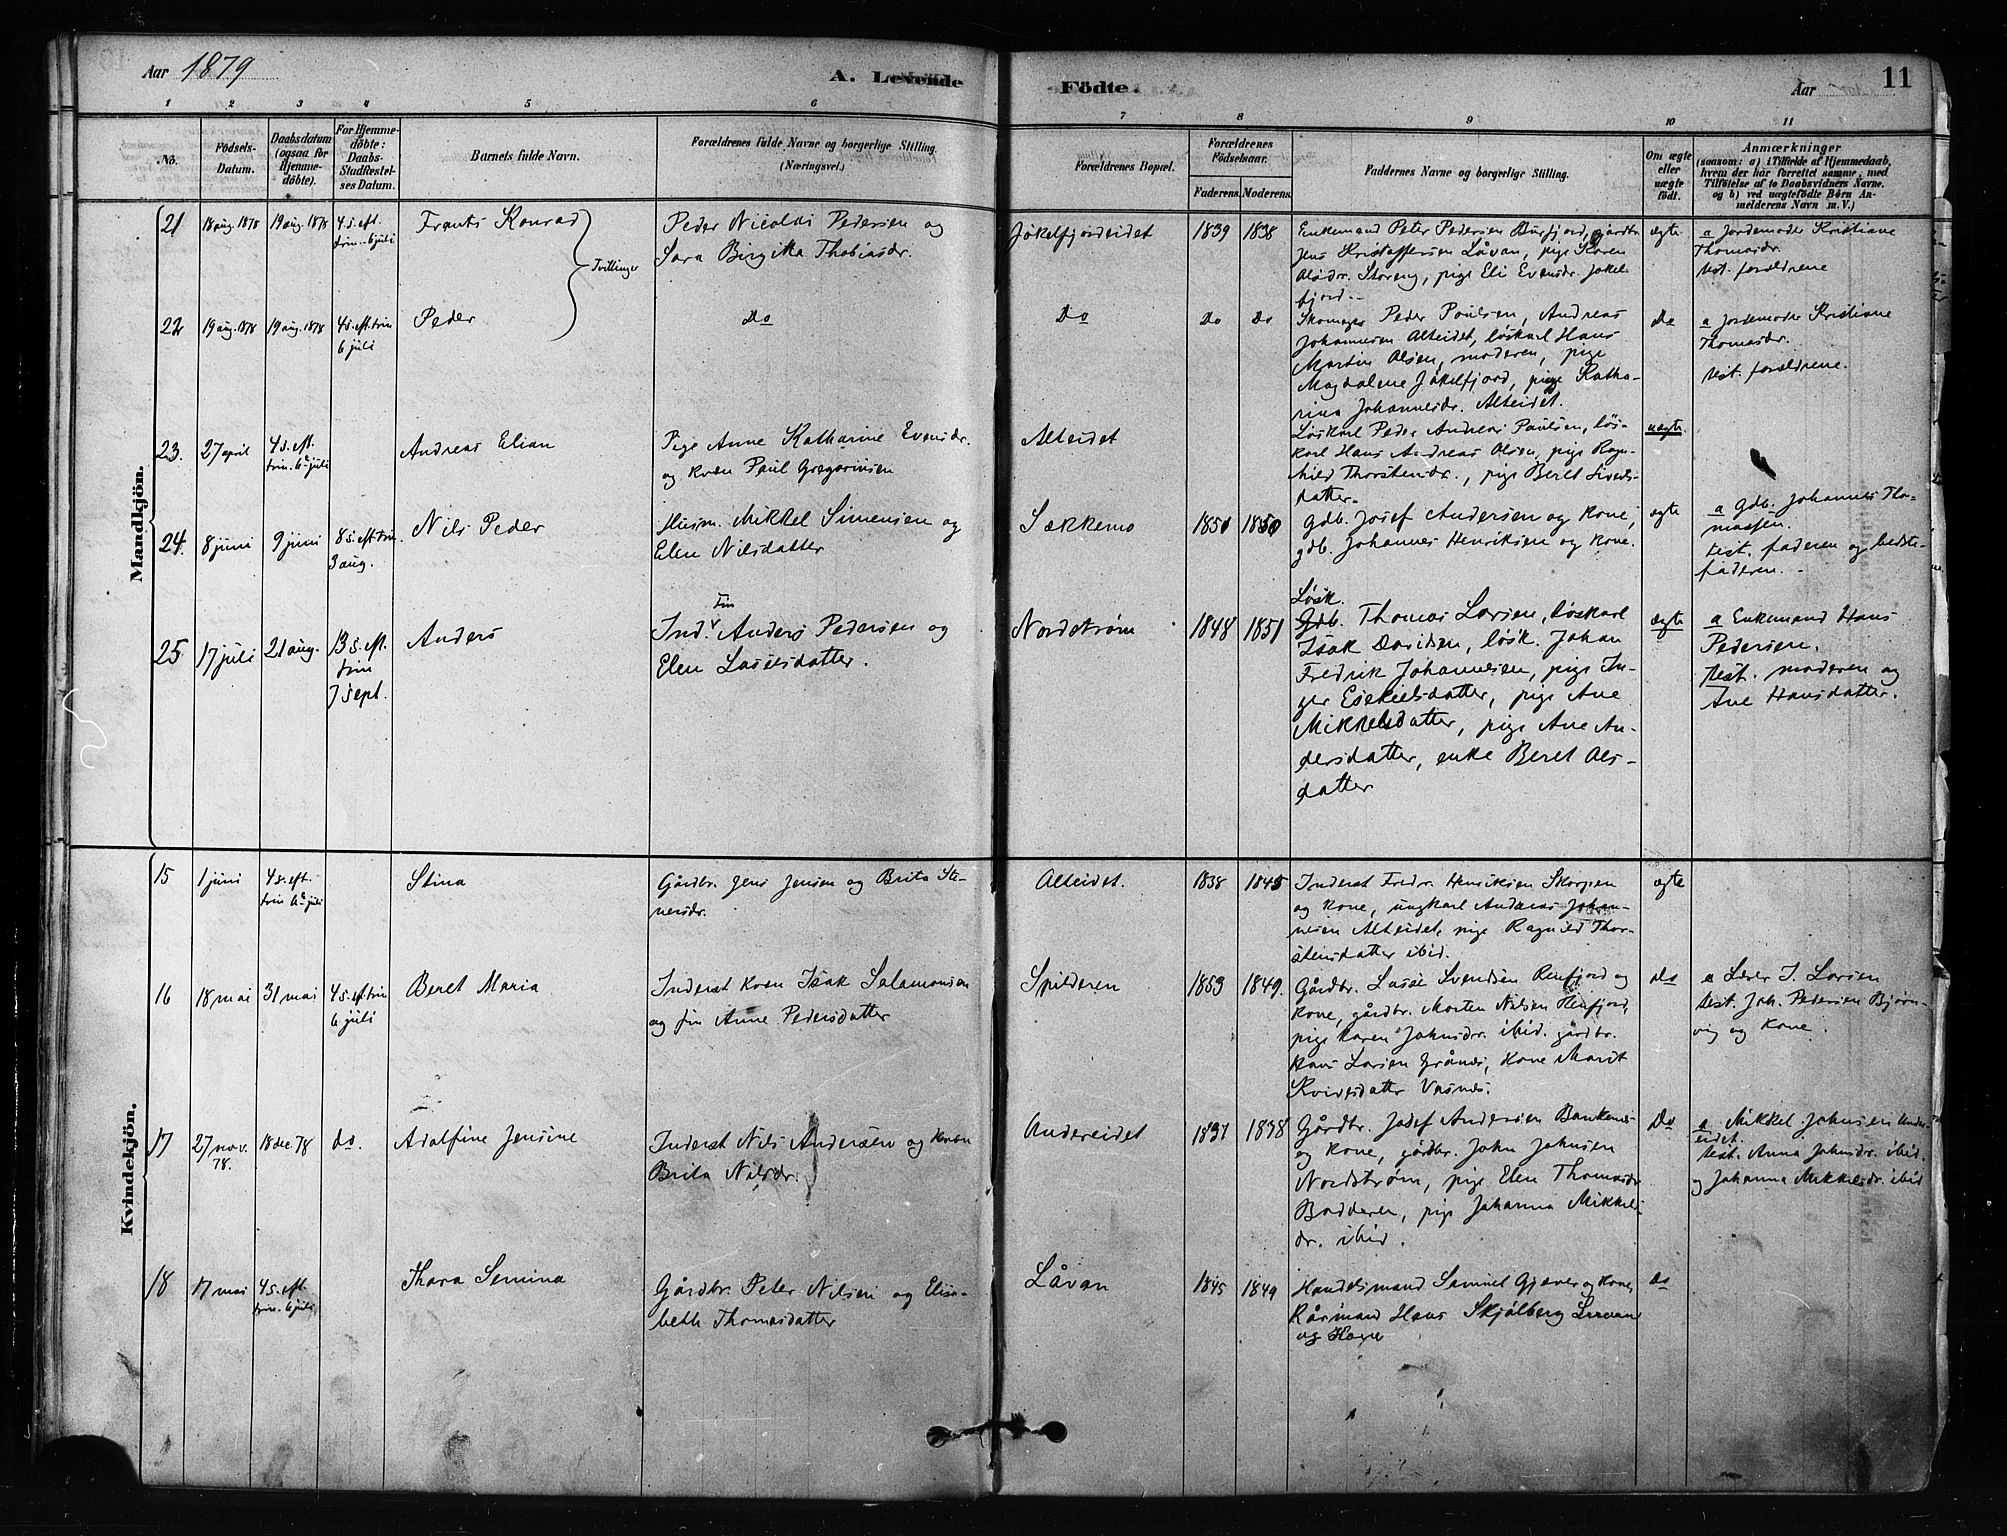 Aar 1879
A. Levende
Födte.
Aar
11
1 2 3 4 5 6 7 8 9 10 11
No.
Födsels-
Datum.
Daabsdatum
(ogsaa for
Hjemme-
döbte).
For Hjemme-
döbte:
Daabs-
Stadfæstel-
ses Datum.
Barnets fulde Navn.
Forældrenes fulde Navne og borgerlige Stilling.
(Næringsvei.)
Forældrenes Bopæl.
Forældrenes
Födselsaar.
Faderens. Moderens.
Faddernes Navne og borgerlige Stilling.
Om ægte
eller
uægte
födt.
Anmærkninger
(saasom: a) i Tilfælde af Hjemmedaab,
hvem der har forrettet samme, med
Tilföielse af to Daabsvidners Navne.
og b) ved uægtefödte Börn An-
melderens Navn m. V.)
Mandkjön.
21
18 aug. 1878
19 aug. 1878
4 s. eft.
trin. 6 juli
Frants Konrad
Tvillinger
Peder Nicolai Pedersen og
Sara Birgitta Thobiasdr.
Jøkelfjordeidet
1839
1838
Enkemand Peter Pedersen Burfjord, gårdbr.
Jens Kristoffersen Låvan, pige Karen
Olsdr. Storeng, pige Eli Evensdr. Jøkel-
fjord.
ægte
a Jordemoder Kristiane
Thomasdr.
test. forældrene
22
19 aug. 1878
19 aug. 1878
4 s. eft. trin
6 juli
Peder
Do
Do
Do
Do
Skomager Peder Poulsen, Andreas
Johannesen Alteidet, løskarl Hans
Martin Olsen, moderen, pige
Magdalene Jøkelfjord, pige Katha-
rina Johannesdr. Alteidet.
Do
a Jordemoder Kristiane
Thomasdr.
test. forældrene.
23.
27 april
4 s. eft.
trin. 6 juli
Andreas Elian
Pige Anne Katharine Evensdr.
og kvæn Paul Gregoriusen
Alteidet
Løskarl Peder Andreas Paulsen, løs-
karl Hans Andreas Olsen, pige Ragn-
hild Thorstensdr., pige Beret Siverts-
datter.
uægte
24.
8 juni
9 juni
8 s. eft. trin.
3 aug.
Nils Peder
Husm. Mikkel Simensen og
Elen Nilsdatter
Sækkemo
1850
1850
Gdb. Josef Andersen og kone,
gdb. Johannes Henriksen og kone.
ægte
a Gdb. Johannes Tho-
massen.
test. faderen og bedste-
faderen.
25
17 juli
21 aug.
13 s. eft.
trin
7 sept.
Anders
fin
Ind. Anders Pedersen og
Elen Lassesdatter.
Nordstrøm
1848
1851
Løsk.
Gdb. Thomas Larsen, løskarl
Isak Davidsen, løsk. Johan
Fredrik Johannesen, pige In-
ger Esekielsdatter, pige Ane
Mikkelsdatter, pige Ane An-
dersdatter, enke Beret Ols-
datter
ægte
a Enkemand Hans
Pedersen.
test. moderen og
Ane Hansdatter.
Kvindekjön.
15
1 juni
4 s. eft.
trin 6 juli
Stina
Gårdbr. Jens Jensen og Brita Ste-
nersdr.
Alteidet.
1838
1845
Inderst Fredr. Henriksen Skorpen
og kone, ungkarl Andreas Johan-
nesen Alteidet, pige Ragnild Thor-
stensdatter ibid.
ægte
16
18 mai
31 mai
4 s. eft. trin
6 juli
Beret Maria
Inderst kvæn Isak Salamonsen
og fin Anne Pedersdatter
Spilderen
1853
1849.
Gårdbr. Lasse Svendsen Reinfjord og
kone, gårdbr. Morten Nilsen Reinfjord,
pige Karen Johnsdr. ibid. gårdbr.
Hans Larsen Grånes, kone Marit
Kvivesdatter Vasnes.
do
a Lærer I. Larsen
test. Joh. Pedersen Bjørn-
vig og kone.
17
27 nov.
78.
18 dec. 78
do.
Adolfine Jensine
Inderst Nils Andersen og kvæn
Brita Nilsdr.
Undereidet
1837
1838
Gårdbr. Josef Andersen Bankenes
og kone, gårdbr. John Johnsen
Nordstrøm, pige Elen Thomasdr
Badderen, pige Johanna Mikkels-
dr. ibid.
Do
a. Mikkel Johnsen Under-
eidet.
test. Anna Johnsdr. ibid.
og Johanna Mikkelsdr. ibid
18
17 mai
4 s. eft.
trin. 6 juli
Thora Semina
Gårdbr. Peter Nilsen og Elisa-
beth Thomasdatter
Låvan
1845
1849
Handelsmand Samuel Gjæver og kone,
Råsmand Hans Skjålberg Laavan
og Kone
do